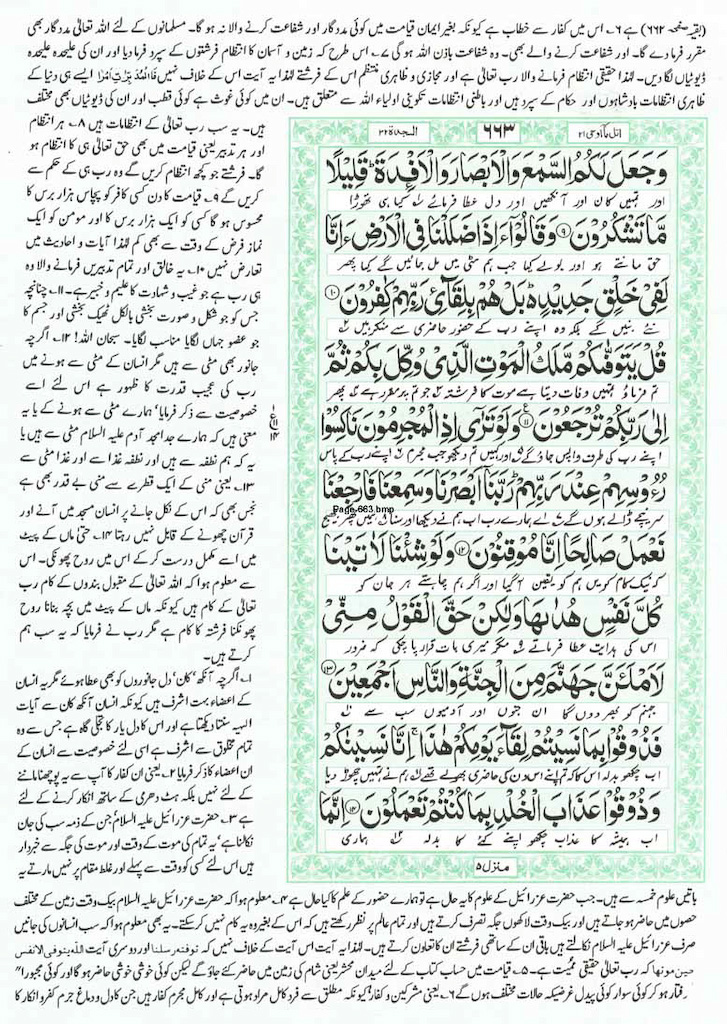 (بقیہ صفحہ ۶۶۲) ہے ۶؎ اس میں کفار سے خطاب ہے کیونکہ بغیر ایمان قیامت میں کوئی مددگار اور شفاعت کرنے والا نہ ہو گا۔ مسلمانوں کے لئے اللہ تعالیٰ مددگار بھی
مقرر فرما دے گا۔ اور شفاعت کرنے والے بھی۔ وہ شفاعت باذن اللہ ہو گی ۷؎ اس طرح کہ زمین و آسمان کا انتظام فرشتوں کے سپرد فرما دیا اور ان کی علیحدہ علیحدہ
ڈیوٹیاں لگا دیں۔ لہٰذا حقیقی انتظام فرمانے والا رب تعالیٰ ہے اور مجازی و ظاہری منتظم اس کے فرشتے لہٰذا یہ آیت اس کے خلاف نہیں فَالْمُدَبِّرٰتِ اَمْرًا ایسے ہی دنیا کے
ظاہری انتظامات بادشاہوں اور حکام کے سپرد ہیں اور باطنی انتظامات تکوینی اولیاء اللہ سے متعلق ہیں۔ ان میں کوئی غوث ہے کوئی قطب اور ان کی ڈیوٹیاں بھی مختلف
ہیں۔ یہ سب رب تعالیٰ کے انتظامات ہیں ۸؎ ہر انتظام
اور ہر تدبیر یعنی قیامت میں بھی حق تعالیٰ ہی کا انتظام ہو
گا۔ فرشتے جو کچھ انتظام کریں گے وہ رب ہی کے حکم سے
کریں گے ۹؎ قیامت کا دن کسی کافر کو پچاس ہزار برس کا
محسوس ہو گا کسی کو ایک ہزار برس کا اور مومن کو ایک
نماز فرض کے وقت سے بھی کم لہٰذا آیات و احادیث میں
تعارض نہیں ۱۰؎ یہ خالق اور تمام تدبیریں فرمانے والا وہ
ہی رب ہے جو غیب و شہادت کا علیم و خبیر ہے۔ ۱۱؎ چنانچہ
جس کو جو شکل و صورت بخشی بالکل ٹھیک بخشی اور جسم کا
جو عضو جہاں لگایا مناسب لگایا۔ سبحان اللہ! ۱۲؎ اگرچہ
جانور بھی مٹی سے ہیں مگر انسان کے مٹی سے ہونے میں
رب کی عجیب قدرت کا ظہور ہے اس لئے اسے
خصوصیت سے ذکر فرمایا' ہمارے مٹی سے ہونے کے یا یہ
معنی ہیں کہ ہمارے جد امجد آدم علیہ السلام مٹی سے ہیں یا
یہ کہ ہم نطفہ سے ہیں اور نطفہ غذا سے اور غذا مٹی سے
۱۳؎ یعنی منی کے ایک قطرے سے منی بے قدر بھی ہے
نجس بھی کہ اس کے نکل جانے پر انسان مسجد میں آنے اور
قرآن چھونے کے قابل نہیں رہتا ۱۴؎ حتیٰ ماں کے پیٹ
میں اسے مکمل درست کر کے اس میں روح پھونکی۔ اس
سے معلوم ہوا کہ اللہ تعالیٰ کے مقبول بندوں کے کام رب
تعالیٰ کے کام ہیں کیونکہ ماں کے پیٹ میں بچہ بنانا روح
پھونکنا فرشتہ کا کام ہے مگر رب نے فرمایا کہ یہ سب ہم
کرتے ہیں۔
۱؎ اگرچہ آنکھ' کان' دل جانوروں کو بھی عطا ہوئے مگر یہ انسان
کے اعضاء بہت اشرف ہیں کیونکہ انسان آنکھ کان سے آیات
الہیہ سنتا دیکھتا ہے اور اس کا دل یار کا تجلی گاہ ہے جس سے وہ
تمام مخلوق سے اشرف ہے اسی لئے خصوصیت سے انسان کے
ان اعضاء کا ذکر فرمایا ۲؎ یعنی ان کفار کا آپ سے یہ پوچھنا ماننے
کے لئے نہیں بلکہ ہٹ دھرمی کے ساتھ انکار کرنے کے لئے
ہے ۳؎ حضرت عزرائیل علیہ السلام' جن کے ذمہ سب کی جان
نکالنا ہے' یہ تمام کی موت کے وقت اور موت کی جگہ سے خبردار
ہیں اس لئے کسی کو وقت سے پہلے اور غلط مقام پر نہیں مارتے یہ
اتل ما اوحی ۲۱
۶۶۳
السجدۃ ۳۲
وَجَعَلَ لَكُمُ السَّمْعَ وَالْاَبْصَارَ وَالْاَفْـِٕدَةَ ؕ قَلِيْلًا
اور تمہیں کان اور آنکھیں اور دل عطا فرمائے لہ کیا ہی تھوڑا
مَّا تَشْكُرُوْنَ ۹ وَقَالُوْۤا ءَاِذَا ضَلَلْنَا فِى الْاَرْضِ ءَاِنَّا
حق مانتے ہو اور بولے کیا جب ہم مٹی میں مل جائیں گے کیا پھر
لَفِىْ خَلْقٍ جَدِيْدٍ ؕ۬ بَلْ هُمْ بِلِقَآئِ رَبِّهِمْ كٰفِرُوْنَ ۱۰
نئے بنیں گے بلکہ وہ اپنے رب کے حضور حاضری سے منکر ہیں
قُلْ يَتَوَفّٰىكُمْ مَّلَكُ الْمَوْتِ الَّذِىْ وُكِّلَ بِكُمْ ثُمَّ
تم فرماؤ تمہیں وفات دیتا ہے موت کا فرشتہ جو تم پر مقرر ہے پھر
اِلٰى رَبِّكُمْ تُرْجَعُوْنَ ۱۱ وَلَوْ تَرٰٓى اِذِ الْمُجْرِمُوْنَ نَاكِسُوْا
اپنے رب کی طرف واپس جاؤ گے اور کہیں تم دیکھو جب مجرم اپنے رب کے پاس
رُءُوْسِهِمْ عِنْدَ رَبِّهِمْ ؕ رَبَّنَاۤ اَبْصَرْنَا وَسَمِعْنَا فَارْجِعْنَا
Page-663.bmp
سر نیچے ڈالے ہوں گے اے ہمارے رب اب ہم نے دیکھا اور سنا ہمیں پھر بھیج
نَعْمَلْ صَالِحًا اِنَّا مُوْقِنُوْنَ ۱۲ وَلَوْ شِئْنَا لَاٰتَيْنَا
کہ نیک کام کریں ہم کو یقین آ گیا اور اگر ہم چاہتے ہر جان کو
كُلَّ نَفْسٍ هُدٰىهَا وَلٰكِنْ حَقَّ الْقَوْلُ مِنِّىْ
اس کی ہدایت عطا فرماتے مگر میری بات قرار پا چکی کہ ضرور
لَاَمْلَئَنَّ جَهَنَّمَ مِنَ الْجِنَّةِ وَالنَّاسِ اَجْمَعِيْنَ ۱۳
جہنم کو بھر دوں گا ان جنوں اور آدمیوں سب سے
فَذُوْقُوْا بِمَا نَسِيْتُمْ لِقَآءَ يَوْمِكُمْ هٰذَا ۚ اِنَّا نَسِيْنٰكُمْ
اب چکھو بدلہ اس کا کہ تم اپنے اس دن کی حاضری بھولے تھے ہم نے تمہیں چھوڑ دیا
وَذُوْقُوْا عَذَابَ الْخُلْدِ بِمَا كُنْتُمْ تَعْمَلُوْنَ ۱۴ اِنَّمَا
اب ہمیشہ کا عذاب چکھو اپنے کئے کا بدلہ ہماری
منزل ۵
باتیں علوم خمسہ سے ہیں۔ جب حضرت عزرائیل کے علوم کا یہ حال ہے تو ہمارے حضور کے علم کا کیا حال ہے ۴؎ معلوم ہوا کہ حضرت عزرائیل علیہ السلام بیک وقت زمین کے مختلف
حصوں میں حاضر ہو جاتے ہیں اور بیک وقت لاکھوں جگہ تصرف کرتے ہیں اور تمام عالم پر نظر رکھتے ہیں کہ اس کے بغیر وہ یہ کام نہیں کر سکتے۔ یہ بھی معلوم ہوا کہ سب انسانوں کی جانیں
صرف عزرائیل علیہ السلام نکالتے ہیں باقی ان کے ساتھی فرشتے ان کا تعاون کرتے ہیں۔ لہٰذا یہ آیت اس آیت کے خلاف نہیں کہ توفتہ رسلنا اور دوسری آیت اللہ یتوفی الانفس
حین موتہا کہ رب تعالیٰ حقیقی ممیت ہے۔ ۵؎ قیامت میں حساب کتاب کے لئے میدان محشر یعنی شام کی زمین میں حاضر کئے جاؤ گے لیکن کوئی خوشی خوشی حاضر ہو گا اور کوئی مجبورا"
رفتار ہو کر کوئی سوار کوئی پیدل غرضیکہ حالات مختلف ہوں گے ۶؎ یعنی مشرکین و کفار' کیونکہ مطلق سے فرد کامل مراد ہوتی ہے اور کامل مجرم کفار ہیں جن کا دل و دماغ جرم کفر و انکار کا